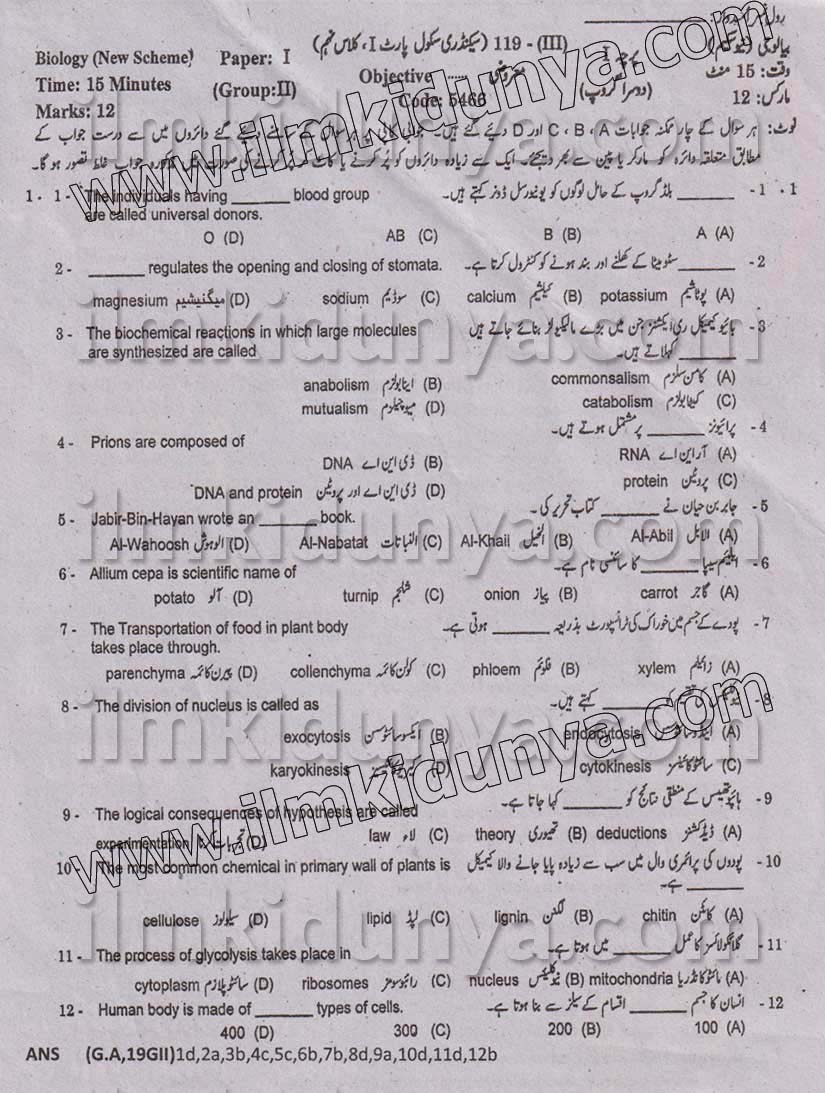 Biology (New Scheme) Paper: I 119 - (III) (سیکنڈری سکول پارٹ I، کلاس نہم)
Time: 15 Minutes (Group:II) Objective معروضی (دوسرا گروپ) وقت: 15 منٹ
Marks: 12 Code: 5466 مارکس: 12
نوٹ: ہر سوال کے چار ممکنہ جوابات A ، B ، C اور D دیئے گئے ہیں۔ گئے دائروں میں سے درست جواب کے
مطابق متعلقہ دائرہ کو مارکر یا پین سے بھر دیجئے۔ ایک سے زیادہ دائروں کو پُر کرنے یا کاٹ کر پُر کرنے کی صورت میں مذکورہ جواب غلط تصور ہو گا۔
1 - 1 - The individuals having ______ blood group ______ بلڈ گروپ کے حامل لوگوں کو یونیورسل ڈونر کہتے ہیں۔ 1 - 1
are called universal donors.
O (D) AB (C) B (B) A (A)
2 - ______ regulates the opening and closing of stomata. ______ سٹومیٹا کے کھلنے اور بند ہونے کو کنٹرول کرتا ہے۔ -2
magnesium میگنیشیم (D) sodium سوڈیم (C) calcium کیلشیم (B) potassium پوٹاشیم (A)
3 - The biochemical reactions in which large molecules بائیو کیمیکل ری ایکشنز جن میں بڑے مالیکیولز بنائے جاتے ہیں -3
are synthesized are called ______ کہلاتے ہیں۔
anabolism اینابولزم (B) commonsalism کامن سلزم (A)
mutualism میوچلزم (D) catabolism کیٹابولزم (C)
4 - Prions are composed of پرائیونز ______ پر مشتمل ہوتے ہیں۔ -4
DNA ڈی این اے (B) RNA آر این اے (A)
DNA and protein ڈی این اے اور پروٹین (D) protein پروٹین (C)
5 - Jabir-Bin-Hayan wrote an ______ book. جابر بن حیان نے ______ کتاب تحریر کی۔ -5
Al-Wahoosh الوہوش (D) Al-Nabatat النباتات (C) Al-Khail الخیل (B) Al-Abil الابل (A)
6 - Allium cepa is scientific name of ایلیم سیپا ______ کا سائنسی نام ہے۔ -6
potato آلو (D) turnip شلجم (C) onion پیاز (B) carrot گاجر (A)
7 - The Transportation of food in plant body پودے کے جسم میں خوراک کی ٹرانسپورٹ بذریعہ ______ ہوتی ہے۔ -7
takes place through.
parenchyma پیرن کائمہ (D) collenchyma کولن کائمہ (C) phloem فلوئم (B) xylem زائیلم (A)
8 - The division of nucleus is called as ______ کہتے ہیں۔ -8
exocytosis ایکسوسائٹوسس (B) endocytosis اینڈوسائٹوسس (A)
karyokinesis (D) cytokinesis سائٹوکائنیسز (C)
9 - The logical consequences of hypothesis are called ہائپوتھیسس کے منطقی نتائج کو ______ کہا جاتا ہے۔ -9
experimentation تجربات کرنا (D) law لاء (C) theory تھیوری (B) deductions ڈیڈکشنز (A)
10 - The most common chemical in primary wall of plants is پودوں کی پرائمری وال میں سب سے زیادہ پایا جانے والا کیمیکل -10
______ ہے۔
cellulose سیلولوز (D) lipid لپڈ (C) lignin لگنن (B) chitin کائٹن (A)
11 - The process of glycolysis takes place in گلائکولائسز کا عمل ______ میں ہوتا ہے۔ -11
cytoplasm سائٹوپلازم (D) ribosomes رائبوسومز (C) nucleus نیوکلیئس (B) mitochondria مائٹوکانڈریا (A)
12 - Human body is made of ______ types of cells. انسان کا جسم ______ اقسام کے سیلز سے بنا ہوتا ہے۔ -12
400 (D) 300 (C) 200 (B) 100 (A)
ANS (G.A,19GII)1d,2a,3b,4c,5c,6b,7b,8d,9a,10d,11d,12b
www.ilmkidunya.com
www.ilmkidunya.com
ilmkidunya.com
ilmkidunya.com
ilmkidunya.com
ilmkidunya.com
ilmkidunya.com